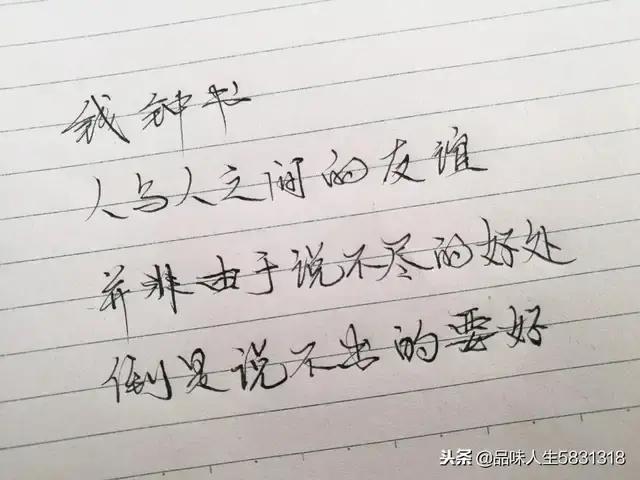 钱钟书
人与人之间的友谊
并非由于说不尽的好处
倒是说不出的要好
头条 @品味人生5831318